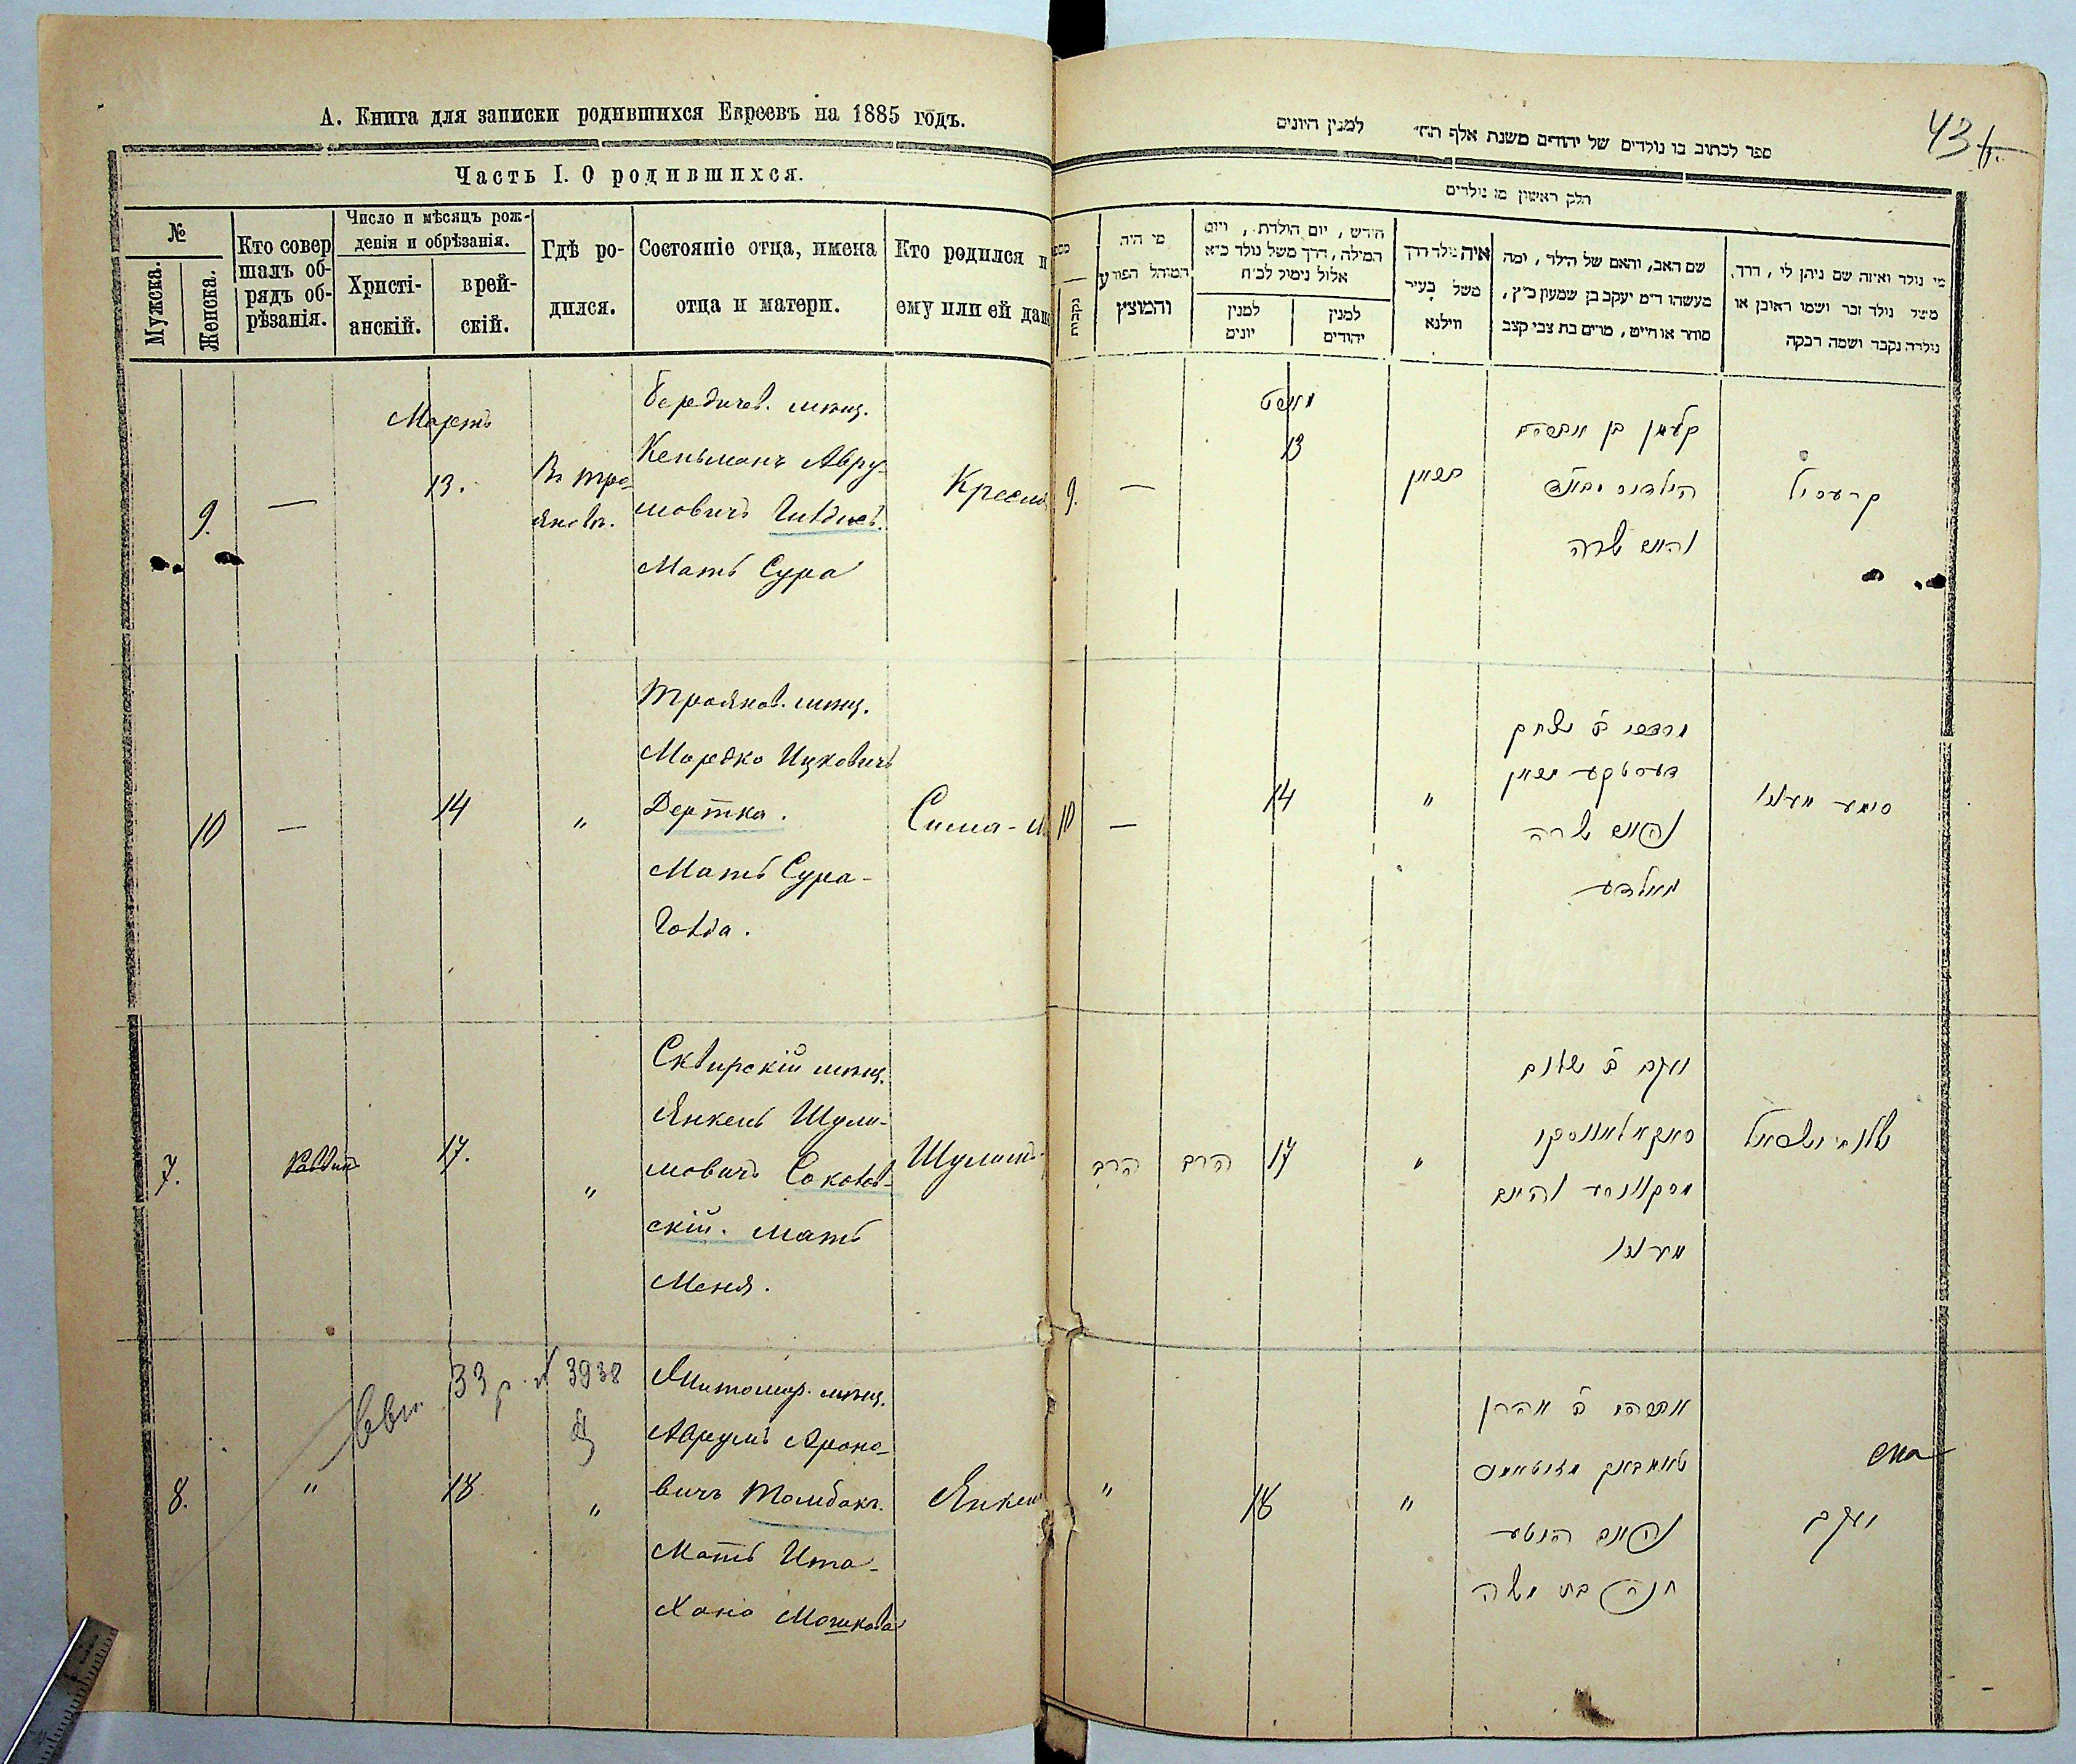 А. Книга для записки родившихся Евреевъ на 1885 годъ.
Часть I. О родившихся.
№
Мужска.
Женска.
Кто совер
шалъ об-
рядъ об-
рѣзанія.
Число и мѣсяцъ рож-
денія и обрѣзанія.
Христі-
анскій.
врей-
скій.
Гдѣ ро-
дился.
Состояніе отца, имена
отца и матери.
Кто родился и
ему или ей дано
9.
—
Мартъ
13.
Въ Тро-
янове.
Бердичев. мѣщ.
Кельманъ Авру-
мовичъ
Мать Сура
10
—
14
"
Троянов. мѣщ.
Мордко Ицковичъ
Дертка.
Мать Сура-
Голда.
Сима-
7.
Раввинъ
17.
"
Сквирскій мѣщ.
Янкель Шули-
мовичъ Соколов-
скій. Мать
Меня.
Шулимъ-
33 р. № 3938
8.
"
18
"
Житомир. мѣщ.
Аврумъ Ароно-
вичъ Томбакъ.
Мать Ита-
Хана Мошкова
Янкель
43
ספר לכתוב בו נולדים של יהודים משנת אלף תת״ למנין היונים
חלק ראשון מן נולדים
נקבות
מי היה
המוהל הפורע
והמוצץ
חודש, יום הולדת, ויום
המילה, דרך משל נולד כ״א
אלול נימול לכ״ח
למנין
יונים
למנין
יהודים
איה נולד דרך
משל בעיר
ווילנא
שם האב, והאם של הילד, ומה
מעשהו ד״מ יעקב בן שמעון כ״ץ,
סוחר או חייט, מרים בת צבי קצב
מי נולד ואיזה שם ניתן לו, דרך
משל נולד זכר ושמו ראובן או
נולדה נקבה ושמה רבקה
9.
—
מארט
13
טראיאן
קלמן בן אברהם
והאם שרה
קרעסיל
10
—
14
"
מרדכי ב׳ יצחק
והאם שרה
גאלדע
סימע מעניו
הרב
הרב
17
"
יעקב ב׳ שלום
סאקאלאווסקי
מסקווירע והאם
מעניו
שלום ישראל
"
18
"
אברהם ב׳ אהרן
טאמבאק מזיטאמיר
והאם היטע
חנה בת משה
יעקב